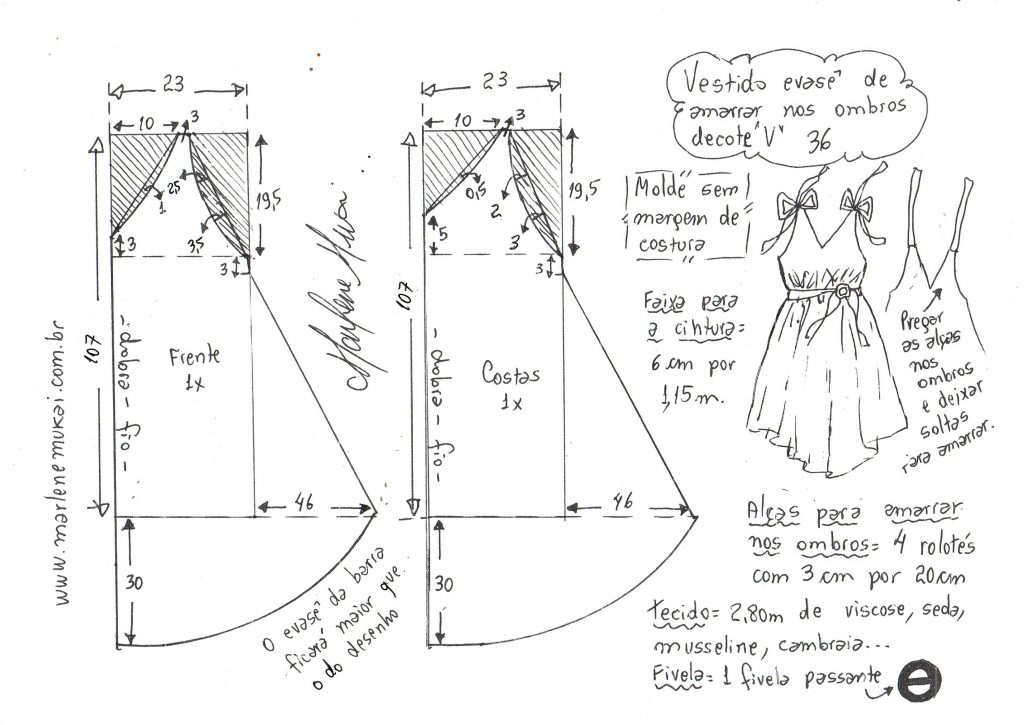 Vestido evasê de
amarrar nos ombros
decote "V" 36
Molde sem
margem de
costura
Faixa para
a cintura=
6 cm por
1,15 m.
Pregar
as alças
nos
ombros
e deixar
soltas
para amarrar.
Alças para amarrar
nos ombros= 4 rolotês
com 3 cm por 20 cm
Tecido= 2,80m de viscose, seda,
musseline, cambraia...
Fivela= 1 fivela passante
23
10
3
1
2,5
3,5
19,5
3
3
107
Frente
1x
- dobra - fio -
46
30
O evasê da barra
ficará maior que
o do desenho
Marlene Mukai
23
10
3
0,5
2
3
19,5
5
3
107
Costas
1x
- dobra - fio -
46
30
www.marlenemukai.com.br